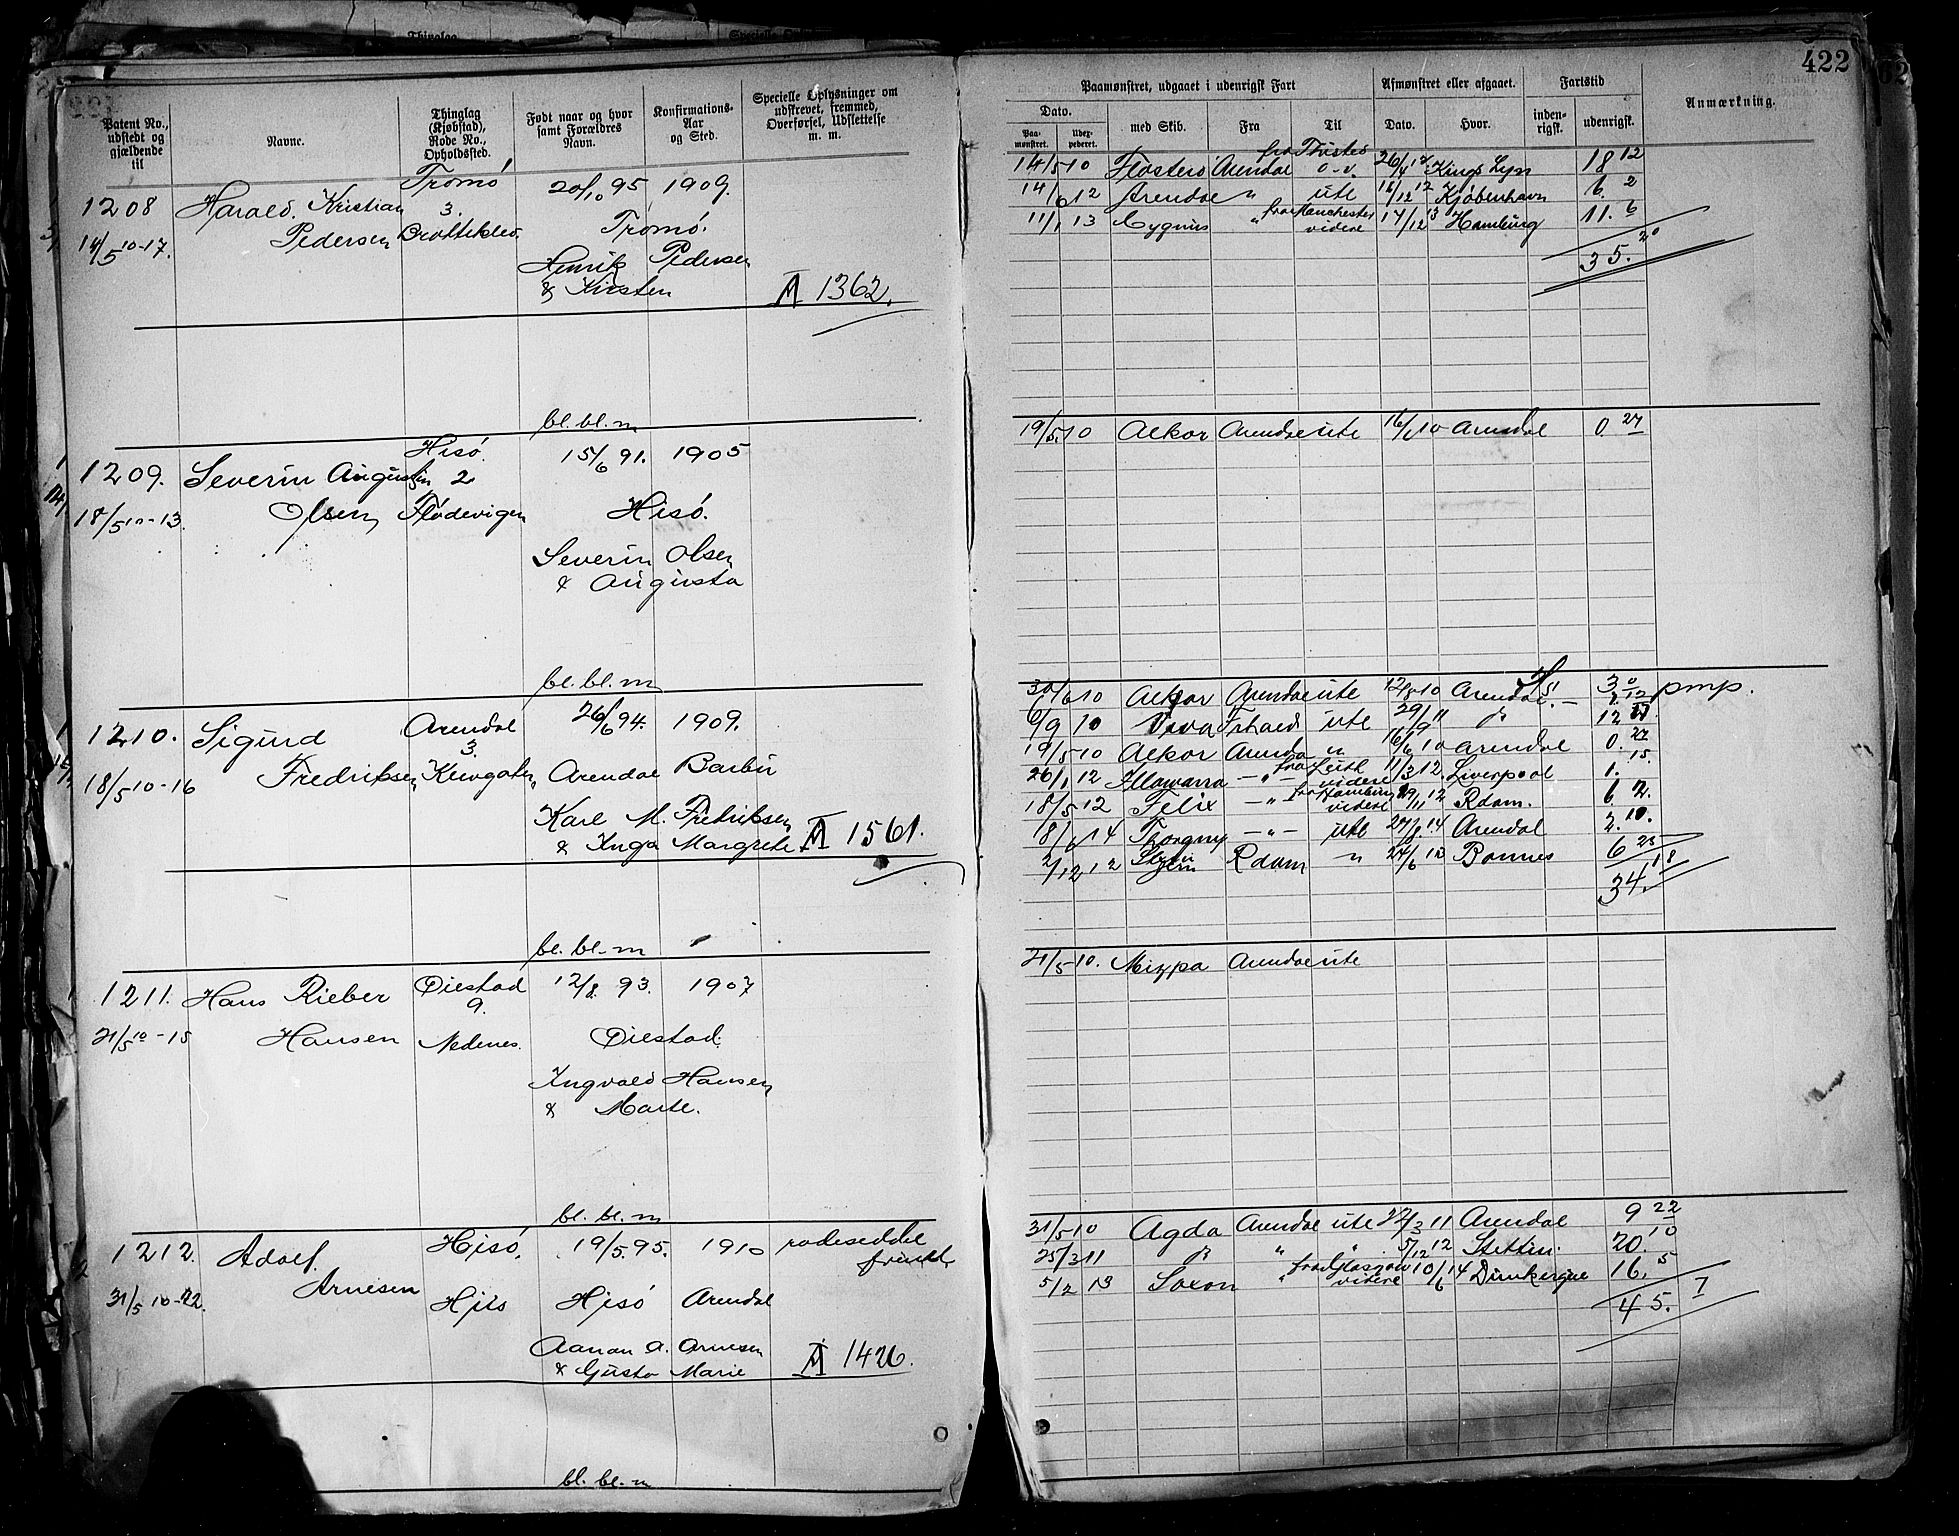 422
Patent No., udstedt og gjældende til
Navne.
Thinglag (Kjøbstad), Rode No., Opholdssted.
Født naar og hvor samt Forældres Navn.
Konfirmations-Aar og Sted.
Specielle Oplysninger om udskrevet, fremmed, Overførsel, Udslettelse m. m.
Paamønstret, udgaaet i udenrigsk Fart
Afmønstret eller afgaaet.
Fartstid
Anmærkning.
Dato.
Paa-mønstret.
med Skib.
Fra
Til
Dato.
Hvor.
inden-rigsk.
udenrigsk.
1208 Harald Kristian Tromø 20/10 95 1909.
14/5 10-17. Pedersen 3. Tromø.
Henrik Pedersen
& Kirsten A 1362.
bl. bl. m
14/5 10 Arendal 26/4 12 Kings Lynn 18 12
14/6 12 Arendal " ute 16/12 12 Kjøbenhavn 6. 2
11/1 13 Cygnus " fra Manchester videre 17/12 13 Hamburg 11. 6
35. 20
1209. Severin Augustin Hisø. 2 15/6 91. 1905
18/5 10-13. Olsen Flødevigen Hisø.
Severin Olsen
& Augusta
bl. bl. m
19/5 10 Alkor Arendal ute 16/6 10 Arendal 0. 27
1210. Sigurd Arendal 3. 26/6 94. 1909.
18/5 10-16 Fredriksen Arendal Barbu
Karl M. Fredriksen
& Inga Margrete A 1561.
bl. bl. m
30/6 10 Alkor Arendal ute 12/8 10 Arendal. pmp.
6/9 10 Viva ute 29/9 11
19/5 10 Alkor Arendal " 16/6 10 Arendal 0. 27
26/1 12 Illawarra - " - fra Leith videre 11/3 12. Liverpool 1. 15.
18/5 12 Felix - " - fra Hamburg videre Rdam. 6 2.
8/6 14 Thorgny - " - ute 27/8 14 Arendal 2. 10.
2/12 12 Styrn Rdam " 24/6 13 6 23
34. 18
1211. Hans Rieber Øiestad 9. 12/8. 93. 1907
21/5 10-15 Hansen Nedenes. Øiestad.
Ingvald Hansen
& Marte.
bl. bl. m
21/5 10. Mizpa Arendal ute
1212. Adolf Hisø, 19/5. 95. 1910 rodeseddel
31/5 10-22. Arnesen Hisø Arendal
Aanon A. Arnesen
& Gusta Marie A 1426.
bl. bl. m
31/5 10 Agda Arendal ute 22/3 11 Arendal 9 22
25/3 11 " " 5/12 12 Stettin. 20. 10
5/2 13 Saxon " fra Glasgow videre 10/6 14 Dunkerque 16. 5
45. 7